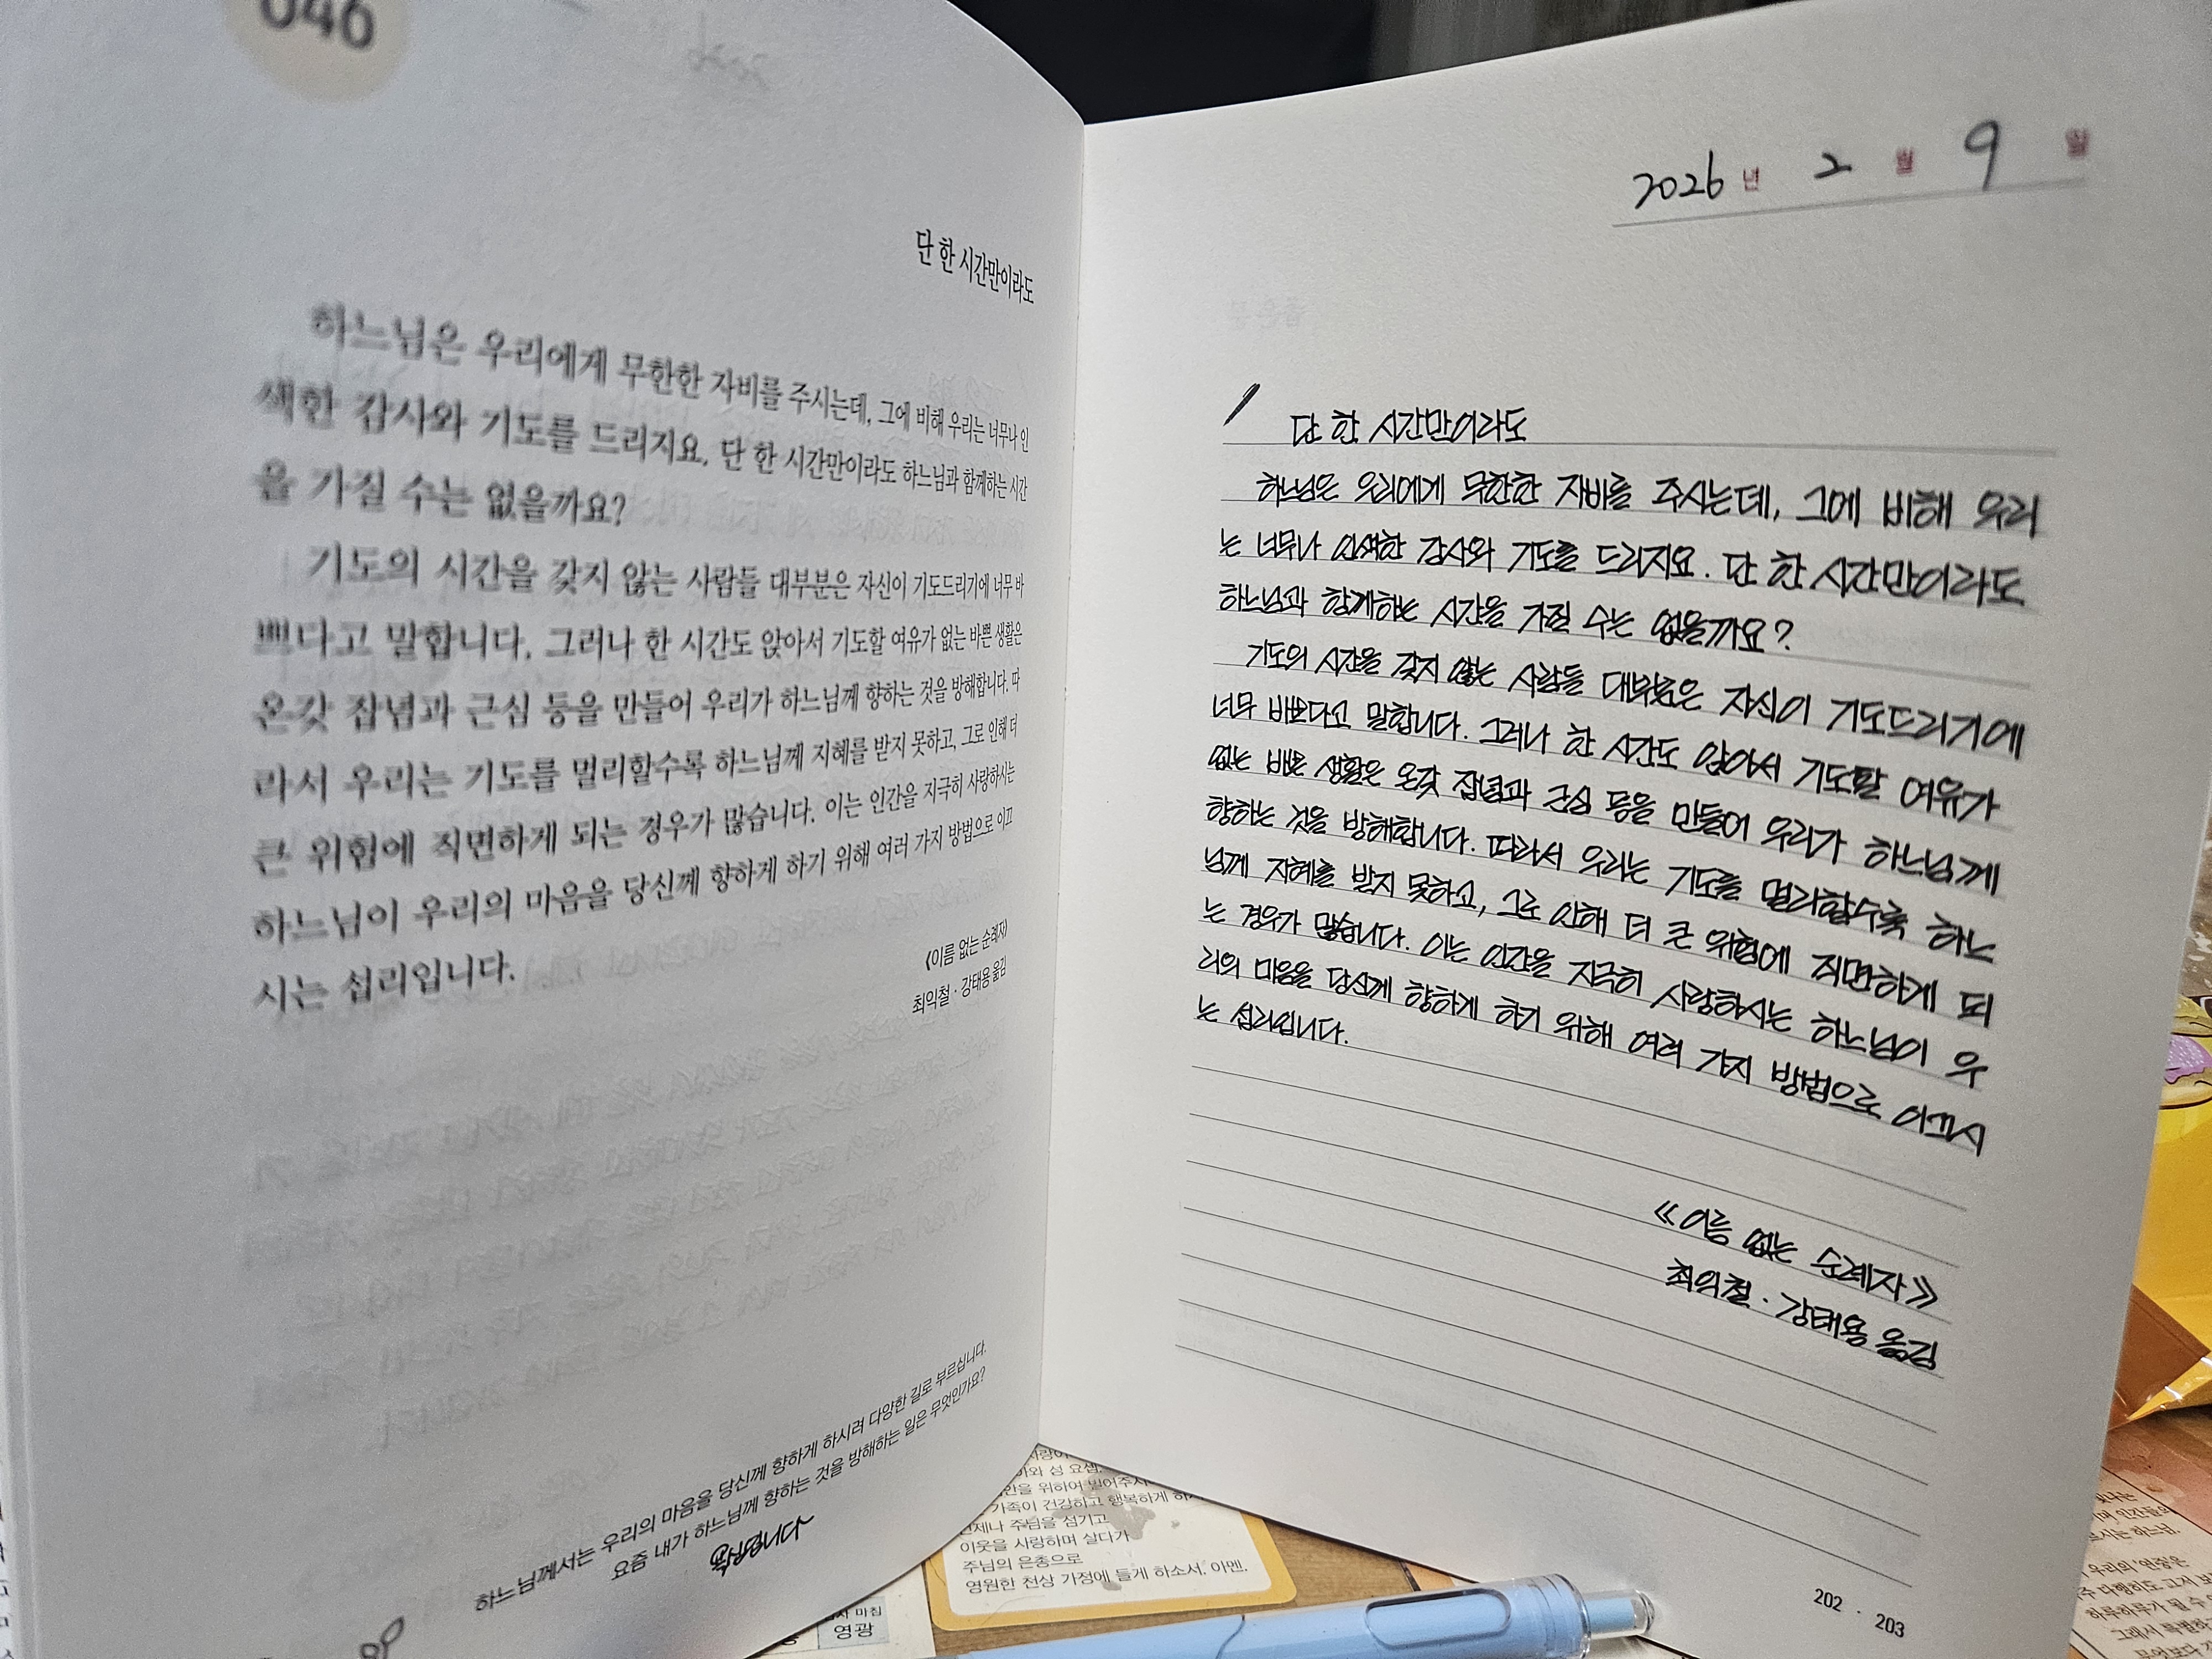 046
단 한 시간만이라도
하느님은 우리에게 무한한 자비를 주시는데, 그에 비해 우리는 너무나 인
색한 감사와 기도를 드리지요. 단 한 시간만이라도 하느님과 함께하는 시간
을 가질 수는 없을까요?
기도의 시간을 갖지 않는 사람들 대부분은 자신이 기도드리기에 너무 바
쁘다고 말합니다. 그러나 한 시간도 앉아서 기도할 여유가 없는 바쁜 생활은
온갖 잡념과 근심 등을 만들어 우리가 하느님께 향하는 것을 방해합니다. 따
라서 우리는 기도를 멀리할수록 하느님께 지혜를 받지 못하고, 그로 인해 더
큰 위험에 직면하게 되는 경우가 많습니다. 이는 인간을 지극히 사랑하시는
하느님이 우리의 마음을 당신께 향하게 하기 위해 여러 가지 방법으로 이끄
시는 섭리입니다.
《이름 없는 순례자》
최익철 · 강태용 옮김
하느님께서는 우리의 마음을 당신께 향하게 하시려 다양한 길로 부르십니다.
요즘 내가 하느님께 향하는 것을 방해하는 일은 무엇인가요?
2026 년 2 월 9 일
단 한 시간만이라도
하느님은 우리에게 무한한 자비를 주시는데, 그에 비해 우리
는 너무나 인색한 감사와 기도를 드리지요. 단 한 시간만이라도
하느님과 함께하는 시간을 가질 수는 없을까요?
기도의 시간을 갖지 않는 사람들 대부분은 자신이 기도드리기에
너무 바쁘다고 말합니다. 그러나 한 시간도 앉아서 기도할 여유가
없는 바쁜 생활은 온갖 잡념과 근심 등을 만들어 우리가 하느님께
향하는 것을 방해합니다. 따라서 우리는 기도를 멀리할수록 하느
님께 지혜를 받지 못하고, 그로 인해 더 큰 위험에 직면하게 되
는 경우가 많습니다. 이는 인간을 지극히 사랑하시는 하느님이 우
리의 마음을 당신께 향하게 하기 위해 여러 가지 방법으로 이끄시
는 섭리입니다.
《이름 없는 순례자》
최익철 · 강태용 옮김
202 · 203
언제나 주님을 섬기고
이웃을 사랑하며 살다가
주님의 은총으로
영원한 천상 가정에 들게 하소서. 아멘.
마침
영광